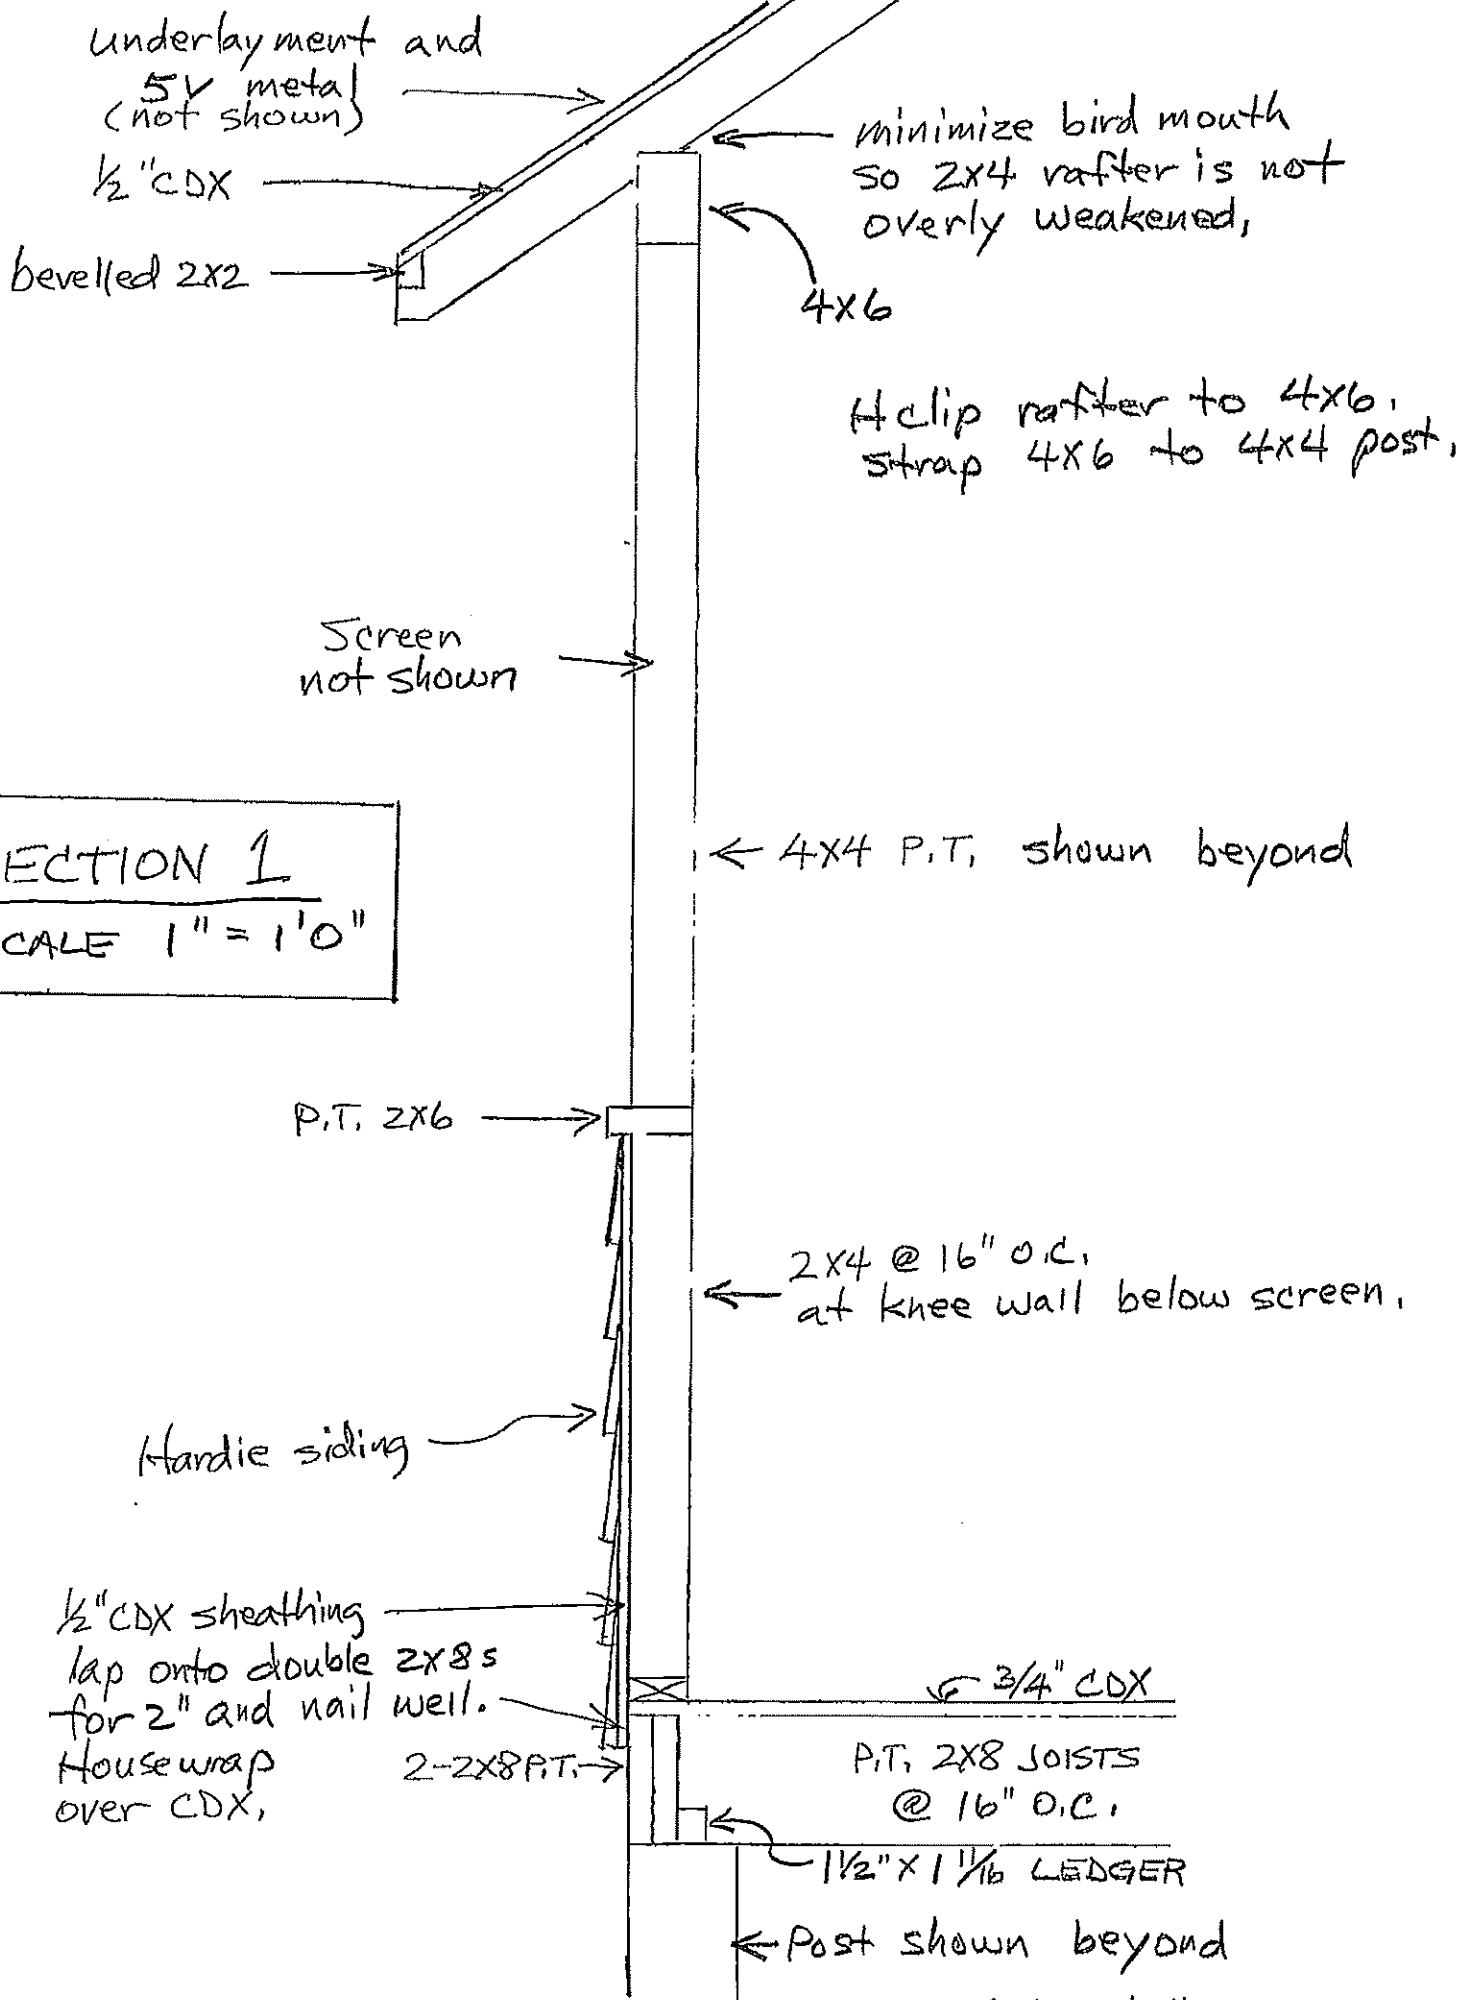 underlayment and
5V metal
(not shown)
½" CDX
bevelled 2x2
minimize bird mouth
so 2x4 rafter is not
overly weakened,
4x6
H clip rafter to 4x6.
strap 4x6 to 4x4 post,
Screen
not shown
ECTION 1
CALE 1" = 1'0"
4x4 P.T. shown beyond
P.T. 2x6
2x4 @ 16" O.C.
at knee wall below screen,
Hardie siding
½" CDX sheathing
lap onto double 2x8s
for 2" and nail well.
Housewrap
over CDX,
2-2x8 P.T.
3/4" CDX
P.T. 2x8 JOISTS
@ 16" O.C.
1½" x 1 11/16 LEDGER
Post shown beyond